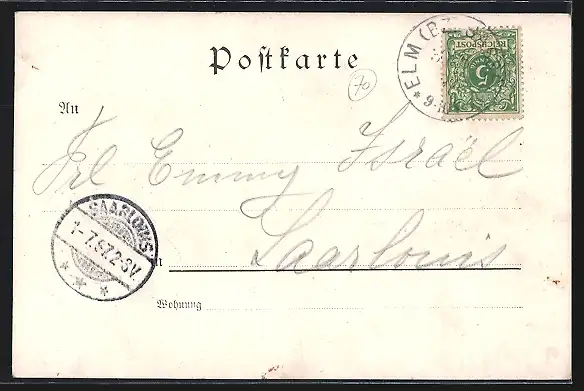 Postkarte
70
ELM (BZ.
9-10
REICHSPOST
5
An
Frl Emmy Israël
SAARLOUIS
1-7.97.2-3V.
in
Saarlouis
Wohnung